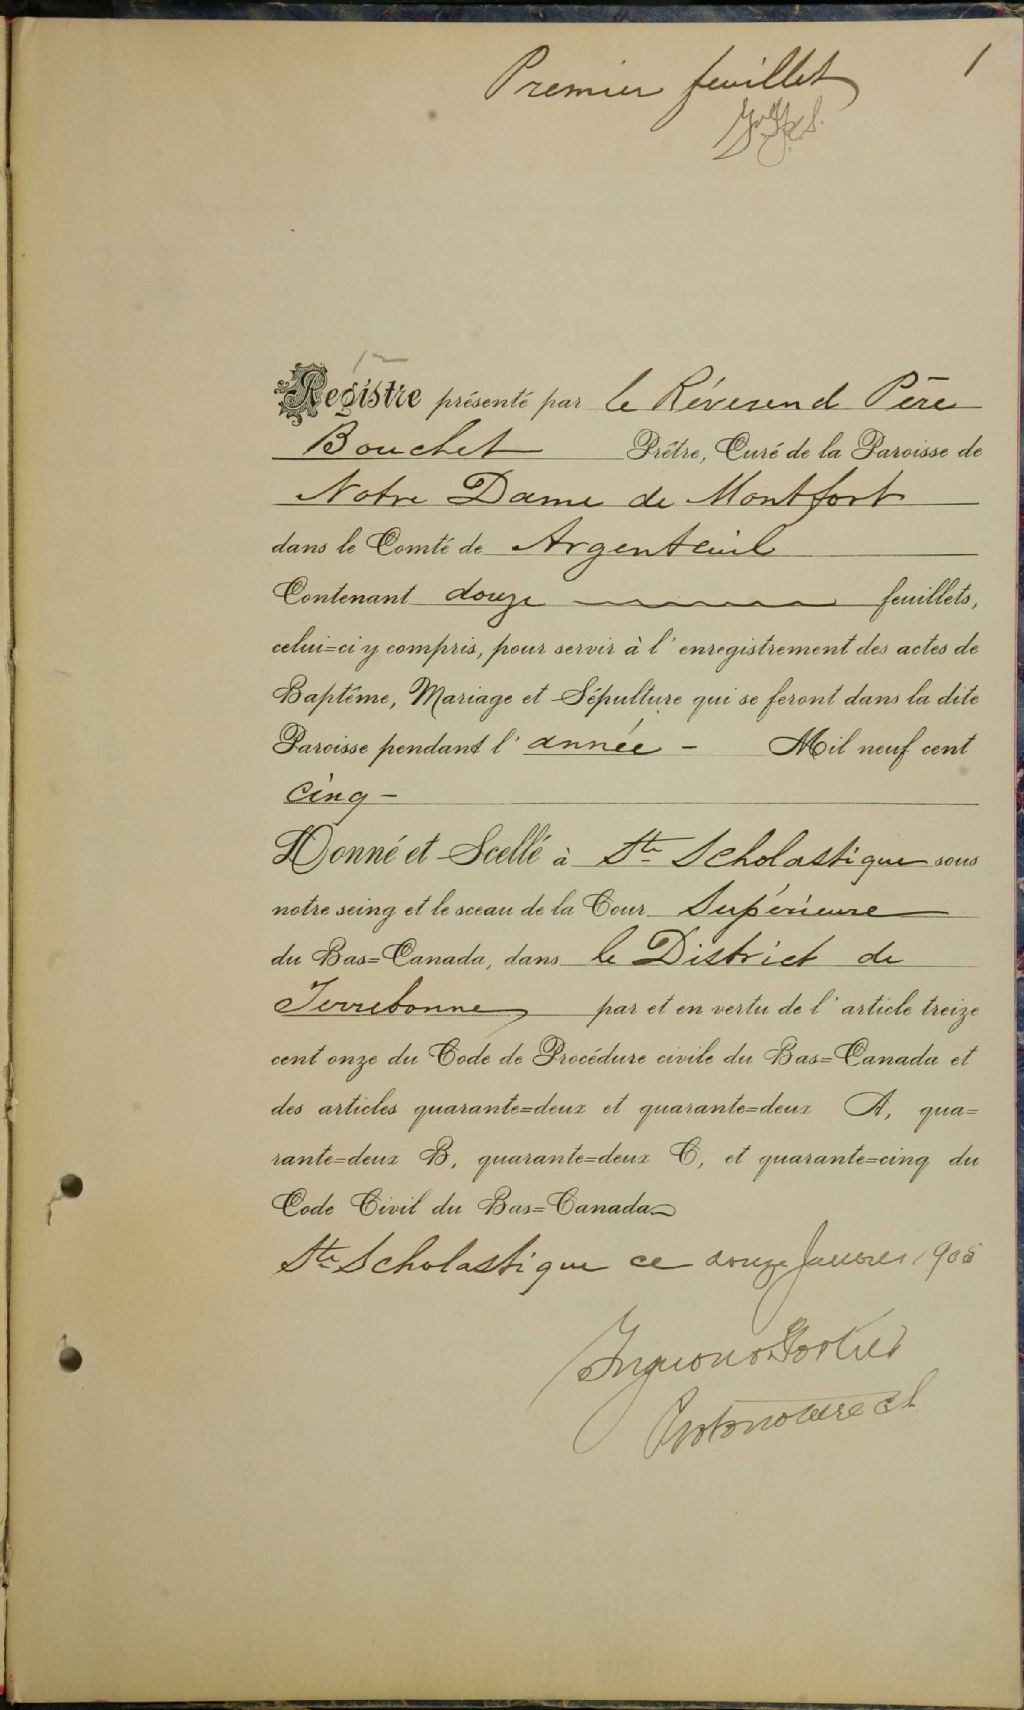 1
Premier feuillet
Registre présenté par le Révérend Père
Bouchet Prêtre, Curé de la Paroisse de
Notre Dame de Montfort
dans le Comté de Argenteuil
Contenant douze feuillets,
celui=ci y compris, pour servir à l'enregistrement des actes de
Baptême, Mariage et Sépulture qui se feront dans la dite
Paroisse pendant l'année - Mil neuf cent
cinq -
Donné et Scellé à Ste Scholastique sous
notre seing et le sceau de la Cour Supérieure
du Bas=Canada, dans le District de
Terrebonne par et en vertu de l'article treize
cent onze du Code de Procédure civile du Bas=Canada et
des articles quarante=deux et quarante=deux A, qua=
rante=deux B, quarante=deux C, et quarante=cinq du
Code Civil du Bas=Canada
Ste Scholastique ce douze Janvier 1905
Protonotaire